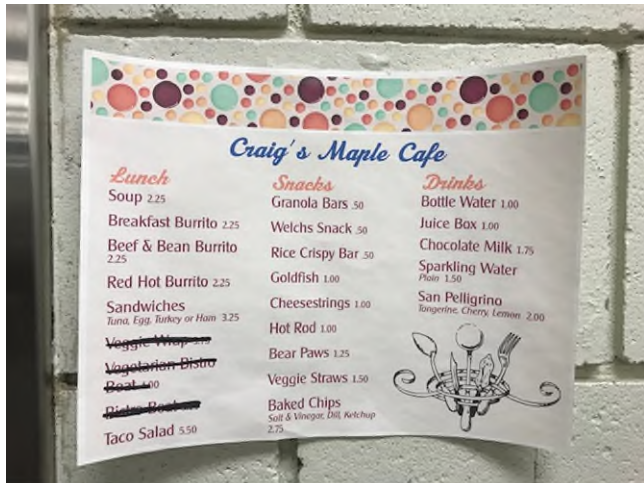 Craig's Maple Cafe
Lunch
Soup 2.25
Breakfast Burrito 2.25
Beef & Bean Burrito
2.25
Red Hot Burrito 2.25
Sandwiches
Tuna, Egg, Turkey or Ham 3.25
Veggie Wrap
Vegetarian Bistro
Boat
Bistro Boat
Taco Salad 5.50
Snacks
Granola Bars .50
Welchs Snack .50
Rice Crispy Bar .50
Goldfish 1.00
Cheesestrings 1.00
Hot Rod 1.00
Bear Paws 1.25
Veggie Straws 1.50
Baked Chips
Salt & Vinegar, Dill, Ketchup
2.75
Drinks
Bottle Water 1.00
Juice Box 1.00
Chocolate Milk 1.75
Sparkling Water
Plain 1.50
San Pelligrino
Tangerine, Cherry, Lemon 2.00